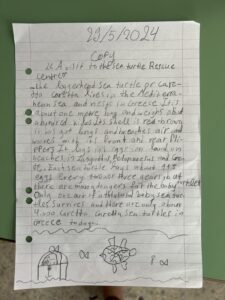 29/5/2024
Copy
A visit to the sea turtle Rescue
Centre
The loggerhead sea turtle or Care-
tta Caretta lives in the Mediterra-
nean sea and nests in Greece. It is
about one metre long and weighs about
hundred kilos. Its shell is red-brown
it has got lungs and breathes air and
moves with its front and rear fli-
ppers. It lays its eggs on sandy
beaches in Zakynthos, Peloponnese and Cre-
te. Each sea turtle lays about 115
eggs every two or three years, but
there are many dangers for the baby turtles
Only one out of a thousand baby sea tur-
tles survives and there are only about
4.000 Caretta Caretta sea turtles in
Greece today.